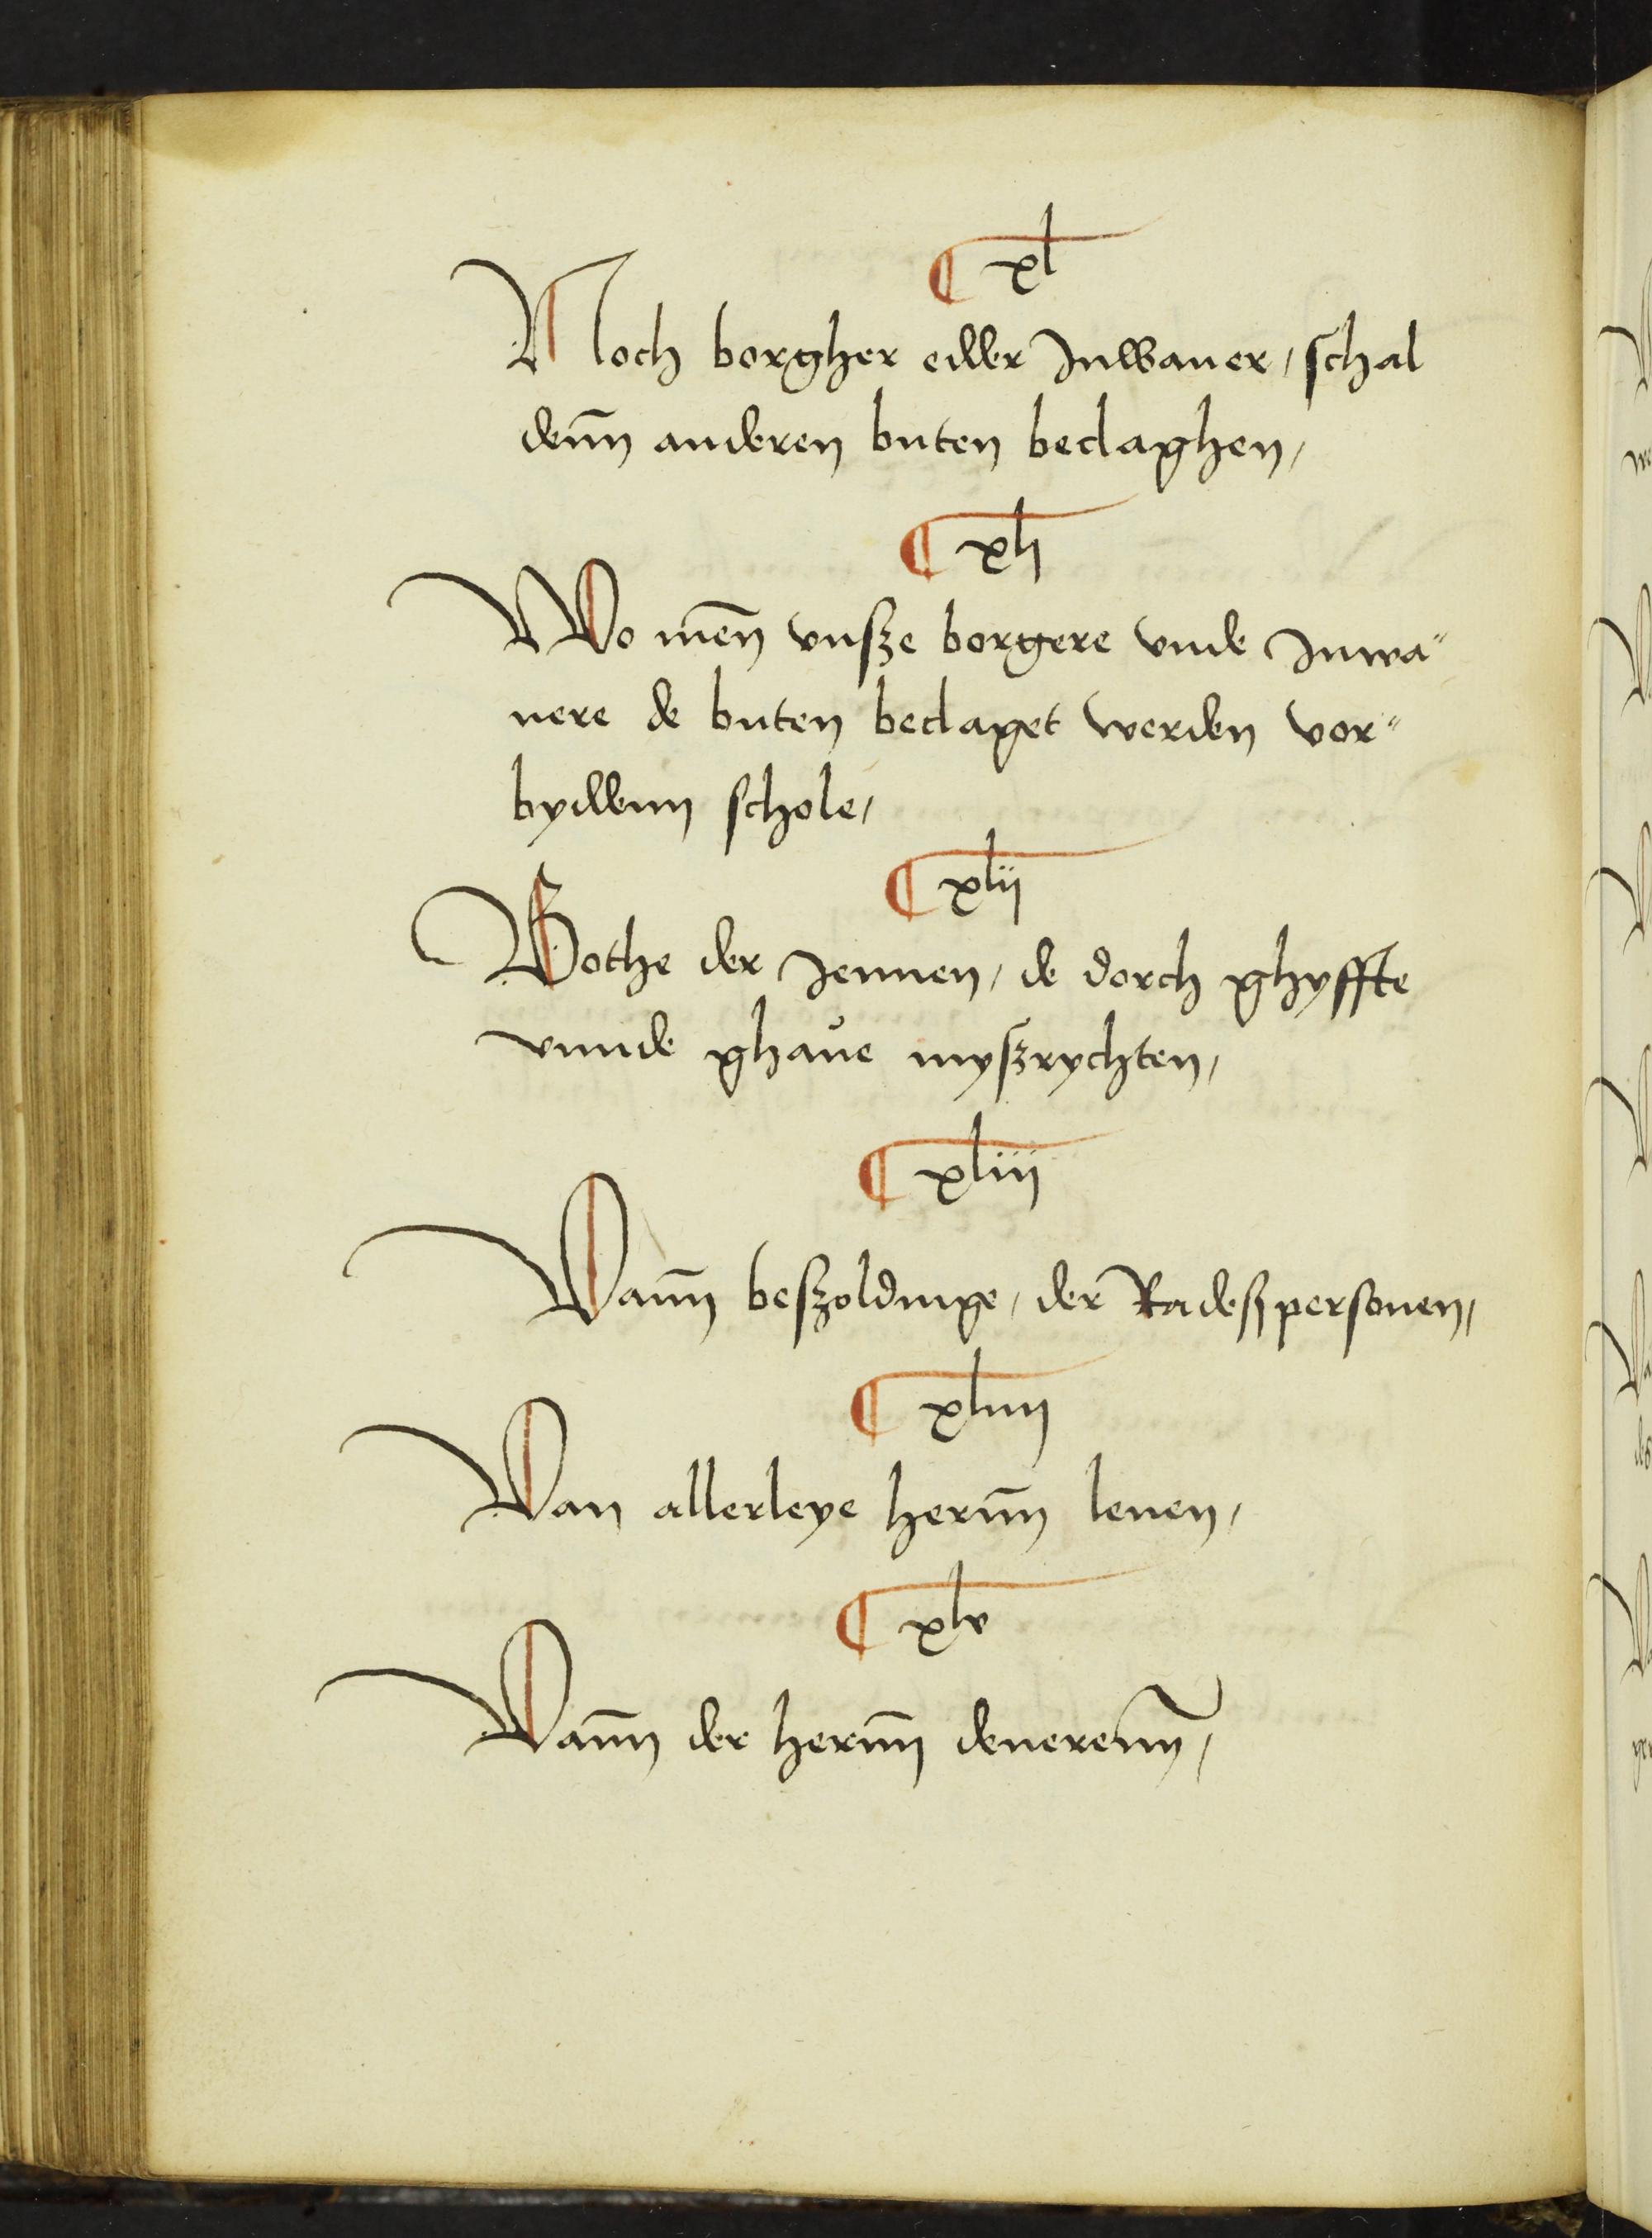 ¶ xl
Noch borgher edder Inwaner / schal
denn̄ anderen buten beclaghen /
¶ xli
Wo men̄ vnsze borgere vnde Inwa"
nere de buten beclaget werden vor"
byddenn schole /
¶ xlii
Bothe der Jennen / de dorch ghyffte
vnnde ghaue myszrychten /
¶ xliii
Vann̄ beszoldinge / der Radeszpersonen /
¶ xliiii
Van allerleye hernn̄ lenen /
¶ xlv
Vann̄ der hernn̄ denerenn̄ /